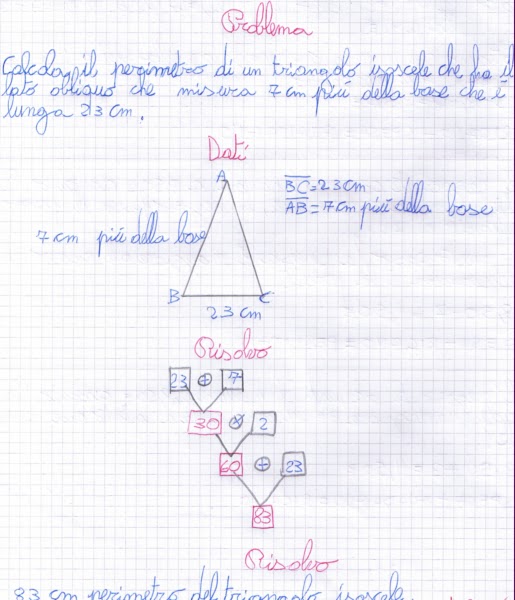 Problema
Calcola il perimetro di un triangolo isoscele che ha il
lato obliquo che misura 7 cm piú della base che é
lunga 23 cm.
Dati
A
BC=23 cm
AB=7 cm piú della base
7 cm piú della base
B C
23 cm
Risolvo
23 + 7
30 × 2
60 + 23
83
Risolvo
83 cm perimetro del triangolo isoscele